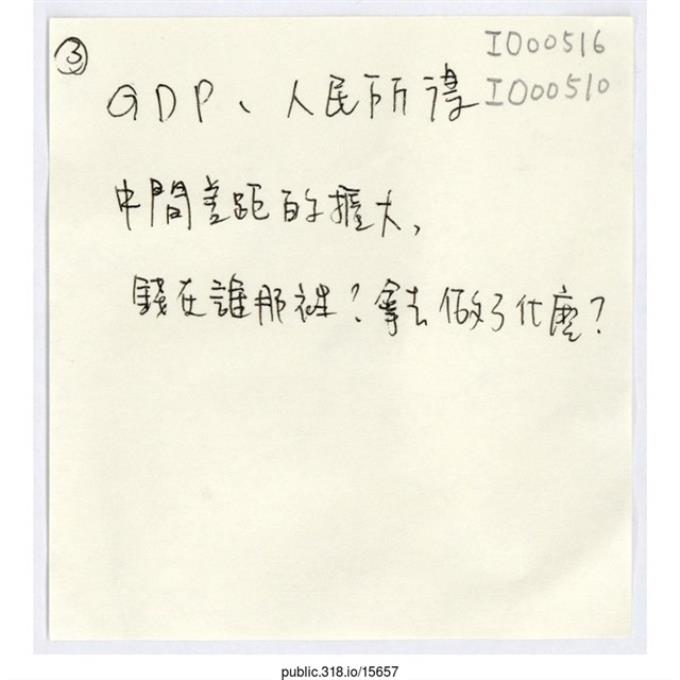 ③
I000516
I000510
GDP、人民所得
中間差距的擴大,
錢在誰那裡?拿去做了什麼?
public.318.io/15657